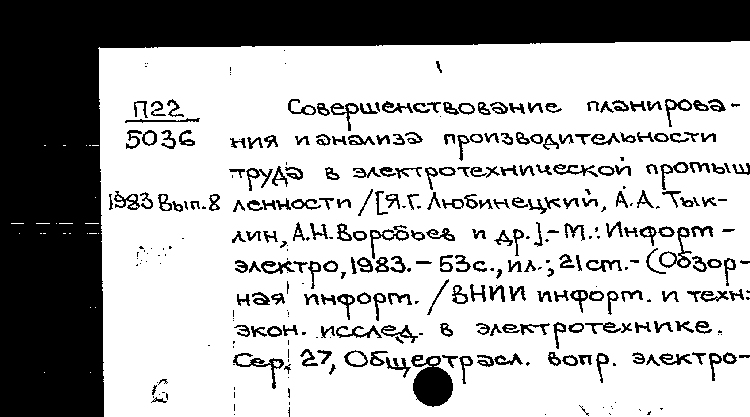 П22
5036
1983 Вып.8
Совершенствование планирова-
ния и анализа производительности
труда в электротехнической промыш
ленности /[Я.Г. Любинецкий, А.А. Тык-
лин, А.Н. Воробьев и др.].- М.: Информ-
электро, 1983. - 53с., ил.; 21 см. - (Обзор-
ная информ. / ВНИИ информ. и техн:
экон. исслед. в электротехнике.
Сер. 27, Общеотрасл. вопр. электро-
6